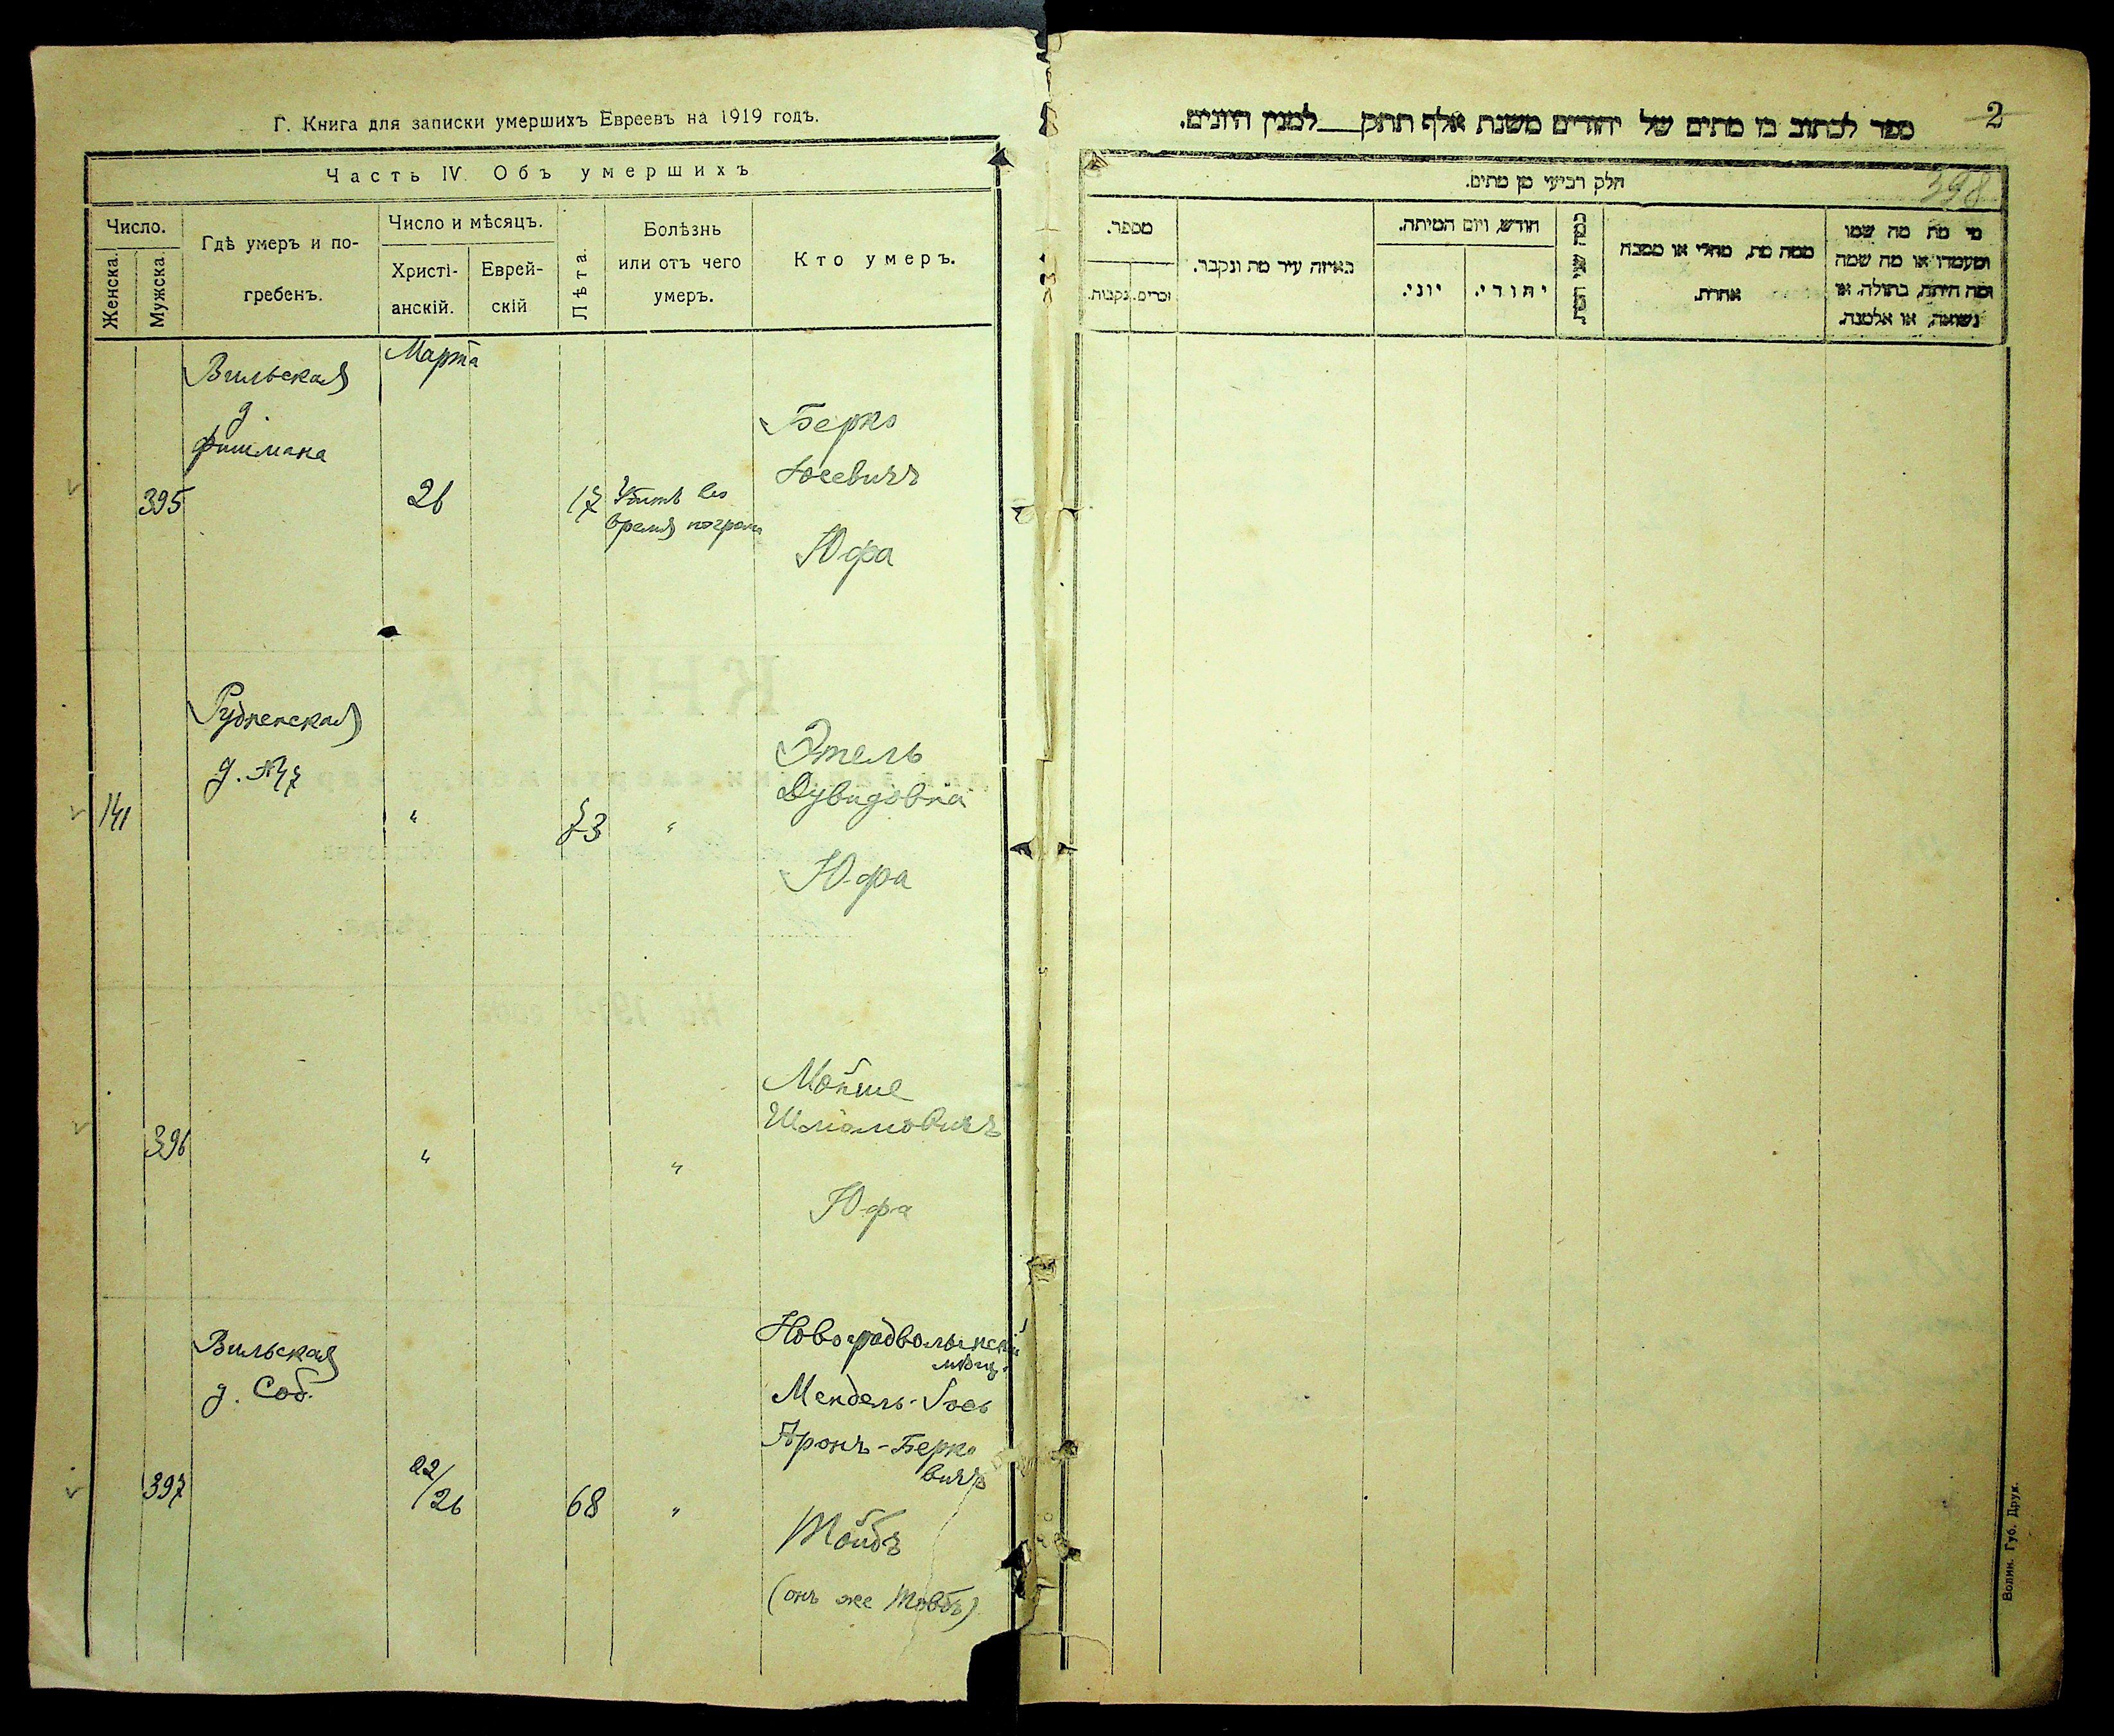 Г. Книга для записки умершихъ Евреевъ на 1919 годъ.
Часть IV. Объ умершихъ
Число.
Женска.
Мужска.
Гдѣ умеръ и по-
гребенъ.
Число и мѣсяцъ.
Христі-
анскій.
Еврей-
скій
Лѣта.
Болѣзнь
или отъ чего
умеръ.
Кто умеръ.
Вильская
д.
Фишмана
Марта
395
26
17
Убитъ во
время погрома
Берко
Юфа
Рудненская
д. №47
141
"
73
"
Этель
Дувидовна
Юфа
396
"
"
Мойше
Шліомовичъ
Юфа
Вильская
д. Соб.
397
22/26
68
"
Новоградволынскій
мѣщ.
Мендель-Іось
Аронъ-Берко
вичъ
Тойбъ
(онъ же Товбъ)
2
ספר לכתוב בו מתים של יהודים משנת אלף תתק___למנין היונים.
398
חלק רביעי מן מתים.
מספר.
זכרים.
נקבות.
באיזה עיר מת ונקבר.
חודש, ויום המיתה.
יוני.
יהודי.
ממה מת, מחלי או מסבה
אחרת.
מי מת מה שמו
ומעמדו או מה שמה
ומה היתה, בתולה, או
נשואה, או אלמנה.
Волин. Губ. Друк.